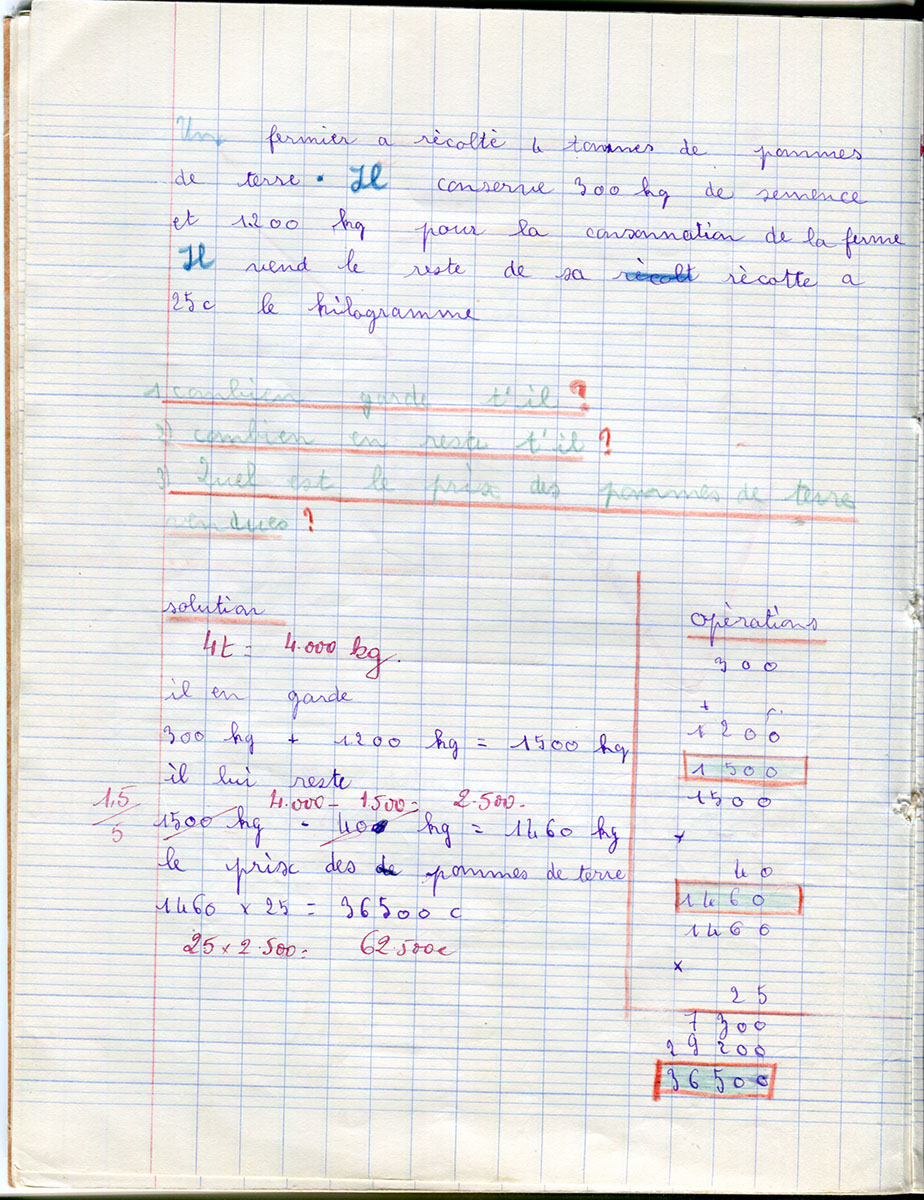 Un fermier a rècoltè 4 tonnes de pommes
de terre. Il conserve 300 kg de semence
et 1200 kg pour la consonnation de la ferme
Il vend le reste de sa rècolt rècotte a
25c le kilogramme
1 combien garde t'il ?
2) combien en reste t'il ?
3) Quel est le prix des pommes de terre
vendues ?
solution
4t = 4.000 kg.
il en garde
300 kg + 1200 kg = 1500 kg
il lui reste
4.000 - 1500 = 2.500.
1,5/5
1500 kg - 40 kg = 1460 kg
le prix des de pommes de terre
1460 x 25 = 36500 c
25 x 2.500 = 62.500c
opèrations
300
+
1200
1500
1500
+
40
1460
1460
x
25
7300
29200
36500